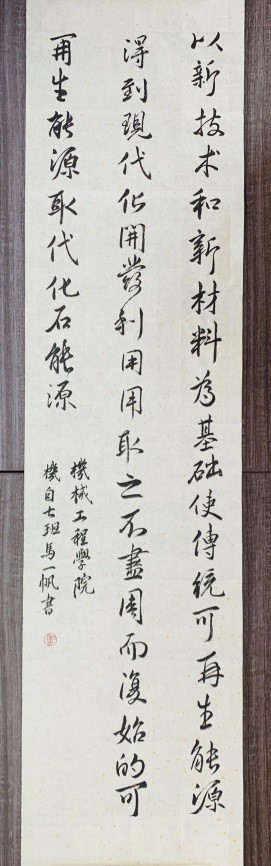 以新技术和新材料為基础使傳统可再生能源
得到現代化開發利用用取之不盡周而復始的可
再生能源取代化石能源
機械工程學院
機自七班馬一帆書